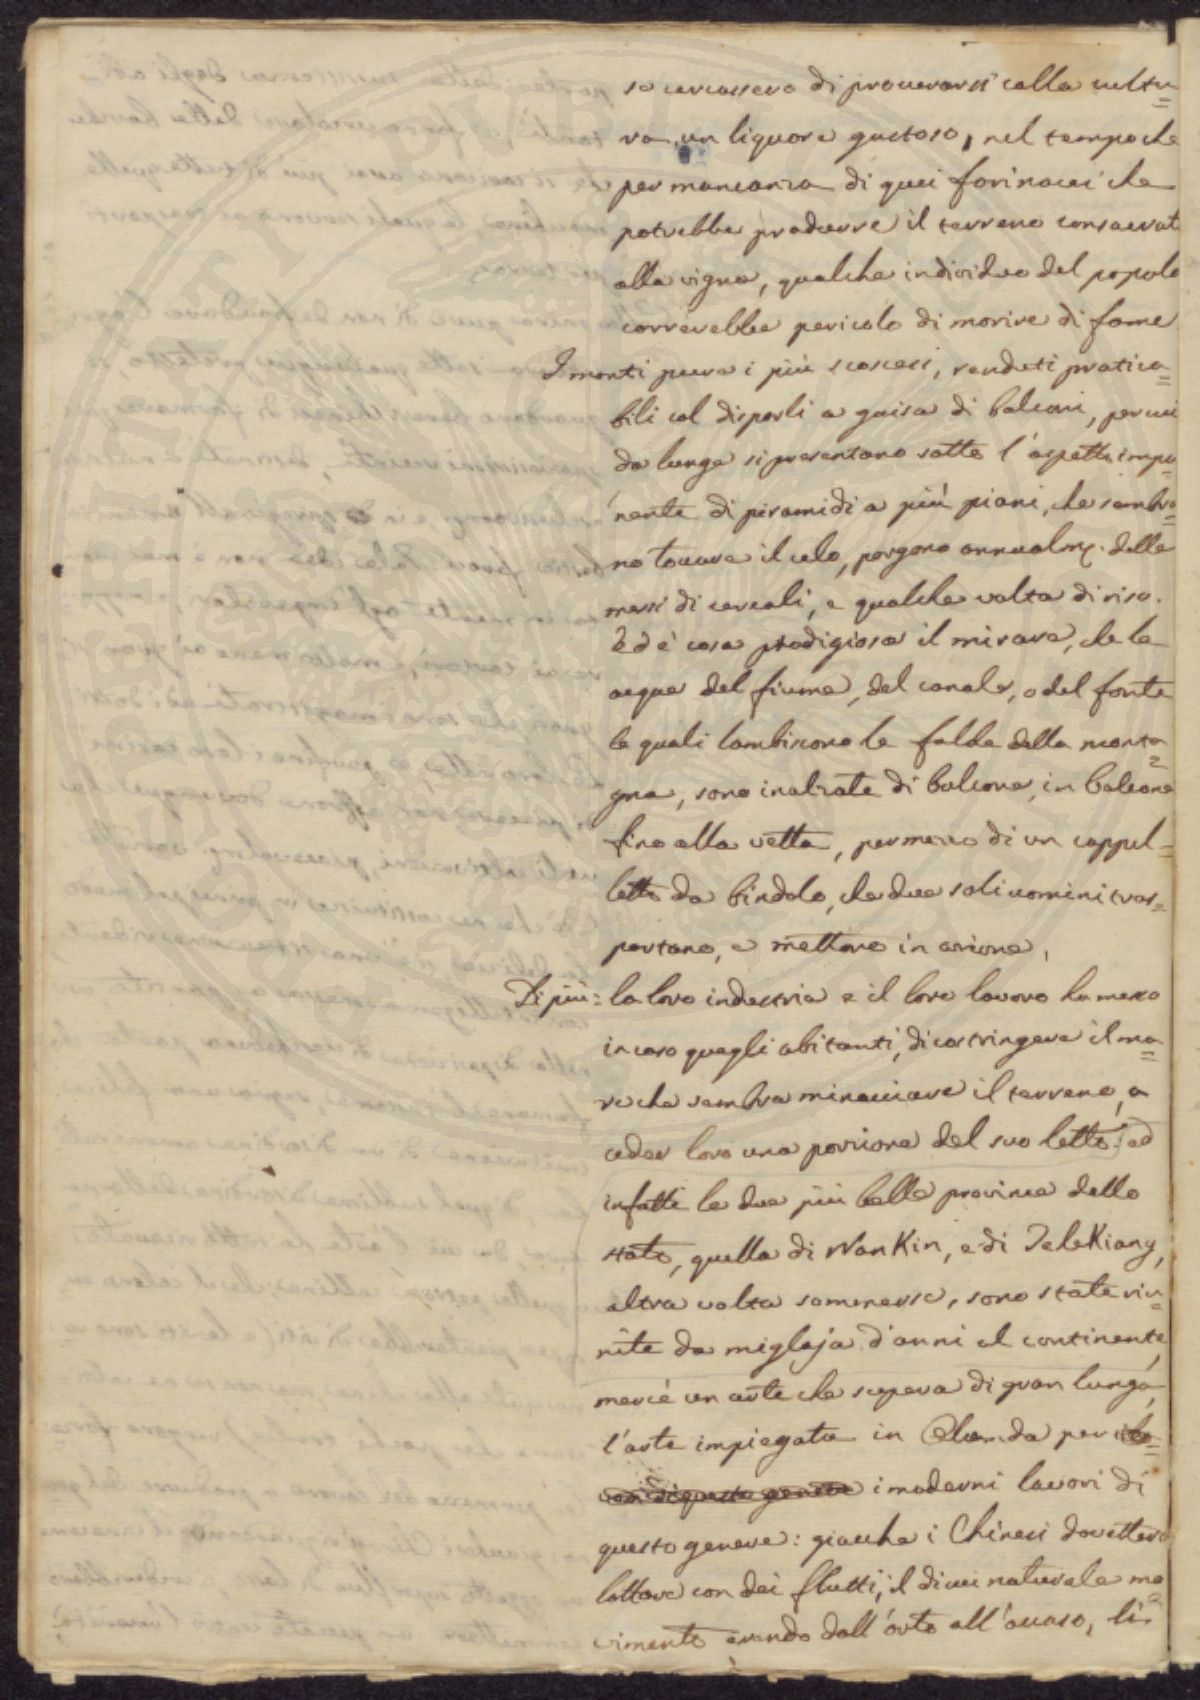 se cercassero di procurarsi colla cultu=
ra, un liquore gustoso, nel tempo che
per mancanza di quei farinacei che
potrebbe produrre il terreno consacrat
alla vigna, qualche individuo del popolo
correrebbe pericolo di morire di fame
I monti pure i più scoscesi, renduti pratica=
bili col disporli a guisa di balconi, per cui
da lunge si presentano sotto l'aspetto impo=
nente di piramidi a più piani, che sembra=
no toccare il celo, porgono annualm.e delle
messi di cereali, e qualche volta di riso.
Ed è cosa prodigiosa il mirare, che le
acque del fiume, del canale, o del fonte
le quali lambiscono le falde della monta=
gna, sono inalzate di balcone, in balcone
fino alla vetta, per mezzo di un cappel=
letto da bindolo, che due soli uomini tras=
portano, e mettono in azione,
Di più: la loro industria e il loro lavoro ha messo
in caso quegli abitanti, di costringere il ma=
re che sembra minacciare il terreno, a
ceder loro una porzione del suo letto: ed
infatti le due più belle province dello
stato, quella di Nan Kin, e di TcheKiang,
altra volta sommerse, sono state riu=
nite da migliaja d'anni al continente,
mercè un arte che supera di gran lunga,
l'arte impiegata in Olanda per
i moderni lavori di
questo genere: giacche i Chinesi dovettero
lottare con dei flutti, il di cui naturale mo=
vimento avendo dall'orto all'occaso, li